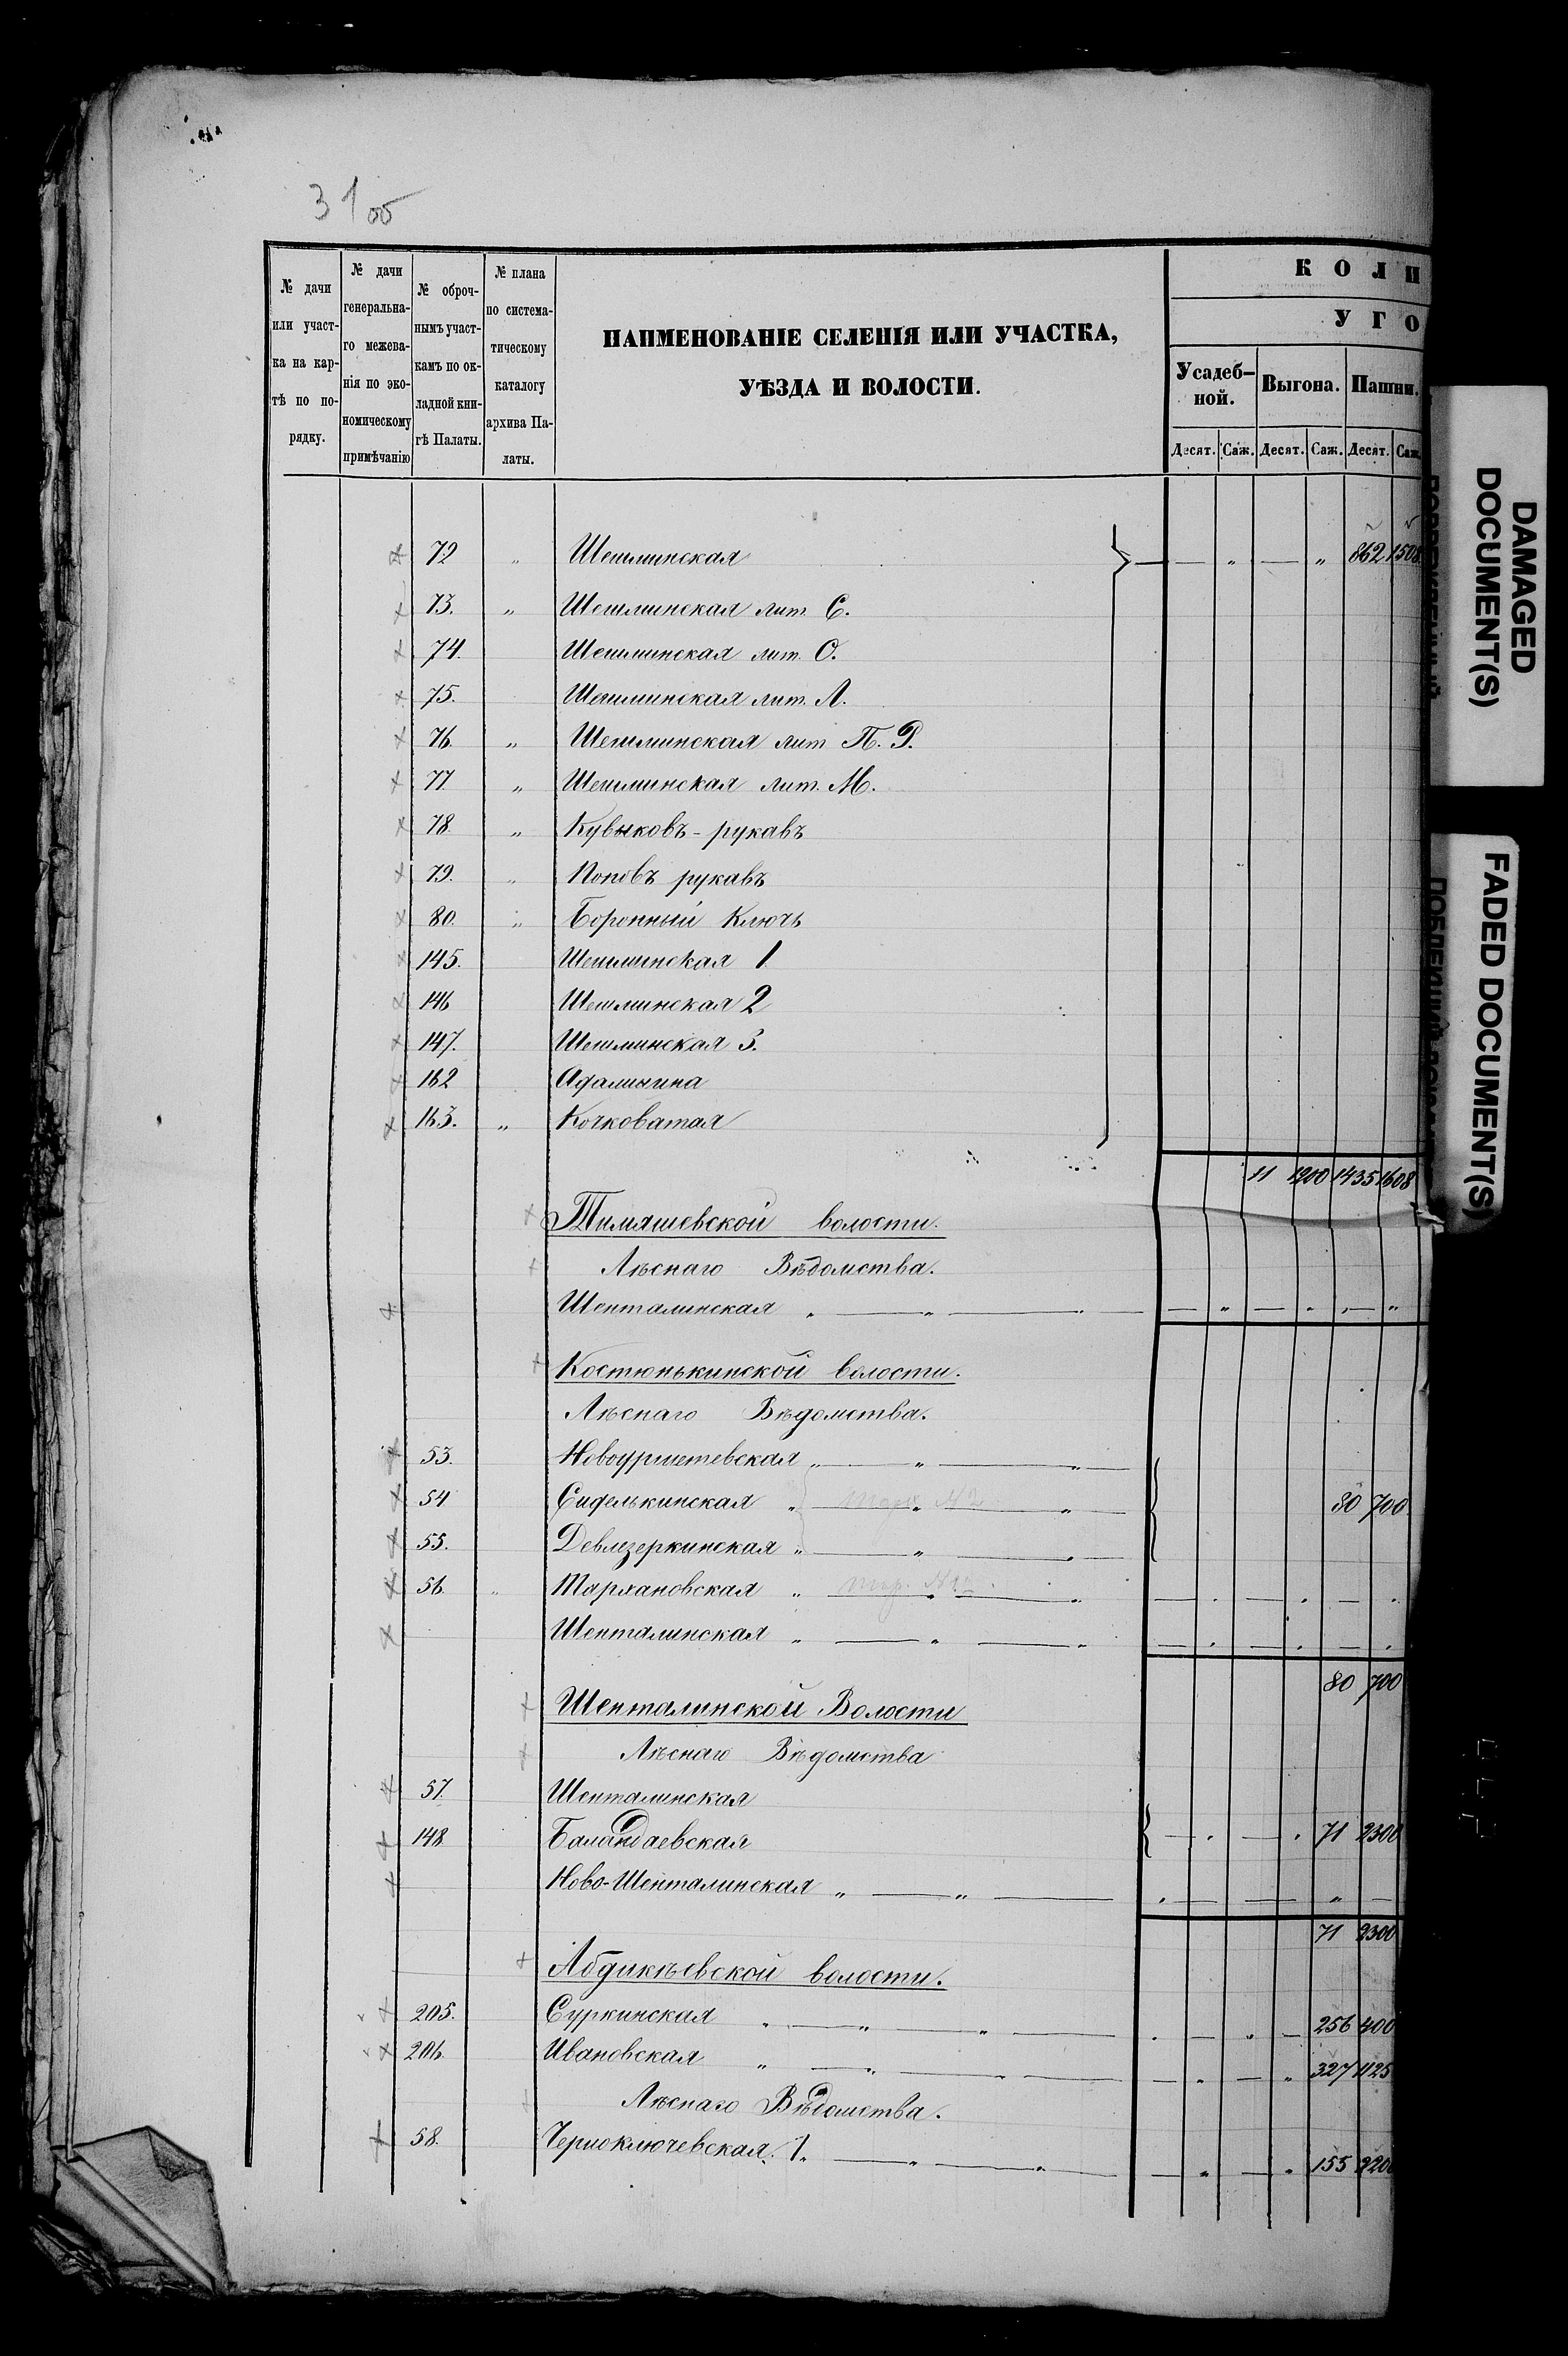 31об
№ дачи или участ-ка на кар-тѣ по по-рядку.
№ дачи генеральна-го межева-нія по эко-номическому примѣчанію
№ оброч-нымъ участ-камъ по ок-ладной кни-гѣ Палаты.
№ плана по система-тическому каталогу архива Па-латы.
НАИМЕНОВАНІЕ СЕЛЕНІЯ ИЛИ УЧАСТКА,
УѢЗДА И ВОЛОСТИ.
КОЛИ
УГО
Усадеб-ной. Выгона. Пашни.
Десят. Саж. Десят. Саж. Десят. Саж.
72 " Шешминская — " — " 862 1508
73. " Шешминская лит. С.
74. Шешминская лит. О.
75. Шешминская лит. Л.
76. " Шешминская лит П. Р.
77 " Шешминская лит. М.
78. " Кувыковъ-рукавъ
79. " Поповъ рукавъ
80. " Боронный Ключъ
145. Шешминская 1
146 Шешминская 2
147. Шешминская 3.
162 Адалинина
163. " Кочковатая
11 1200 1435 1608
Тимяшевской волости.
Лѣснаго Вѣдомства.
Шенталинская " — " — " — " — " — "
Костюнькинской волости.
Лѣснаго Вѣдомства.
53. Новоурметевская " — " — "
54 Сиделькинская " — " — " 80 700
55. Девлезеркинская " — " — "
56. " Тархановская " — " — " — " — " — "
Шенталинская " — " — " — " — " — "
80 700
Шенталинской Волости
Лѣснаго Вѣдомства
57. Шенталинская
148 Баландаевская — " — " 71 2300
Ново-Шенталинская " — " — " — — " —
71 2300
Абдикѣевской волости.
205. Суркинская " — " — " — " — " — 256 400
206. Ивановская " — " — " — — " — " 327 1125
Лѣснаго Вѣдомства.
58. Черноключевская 1. " — " — " — — " — " 155 2200
DAMAGED
DOCUMENT(S)
FADED DOCUMENT(S)